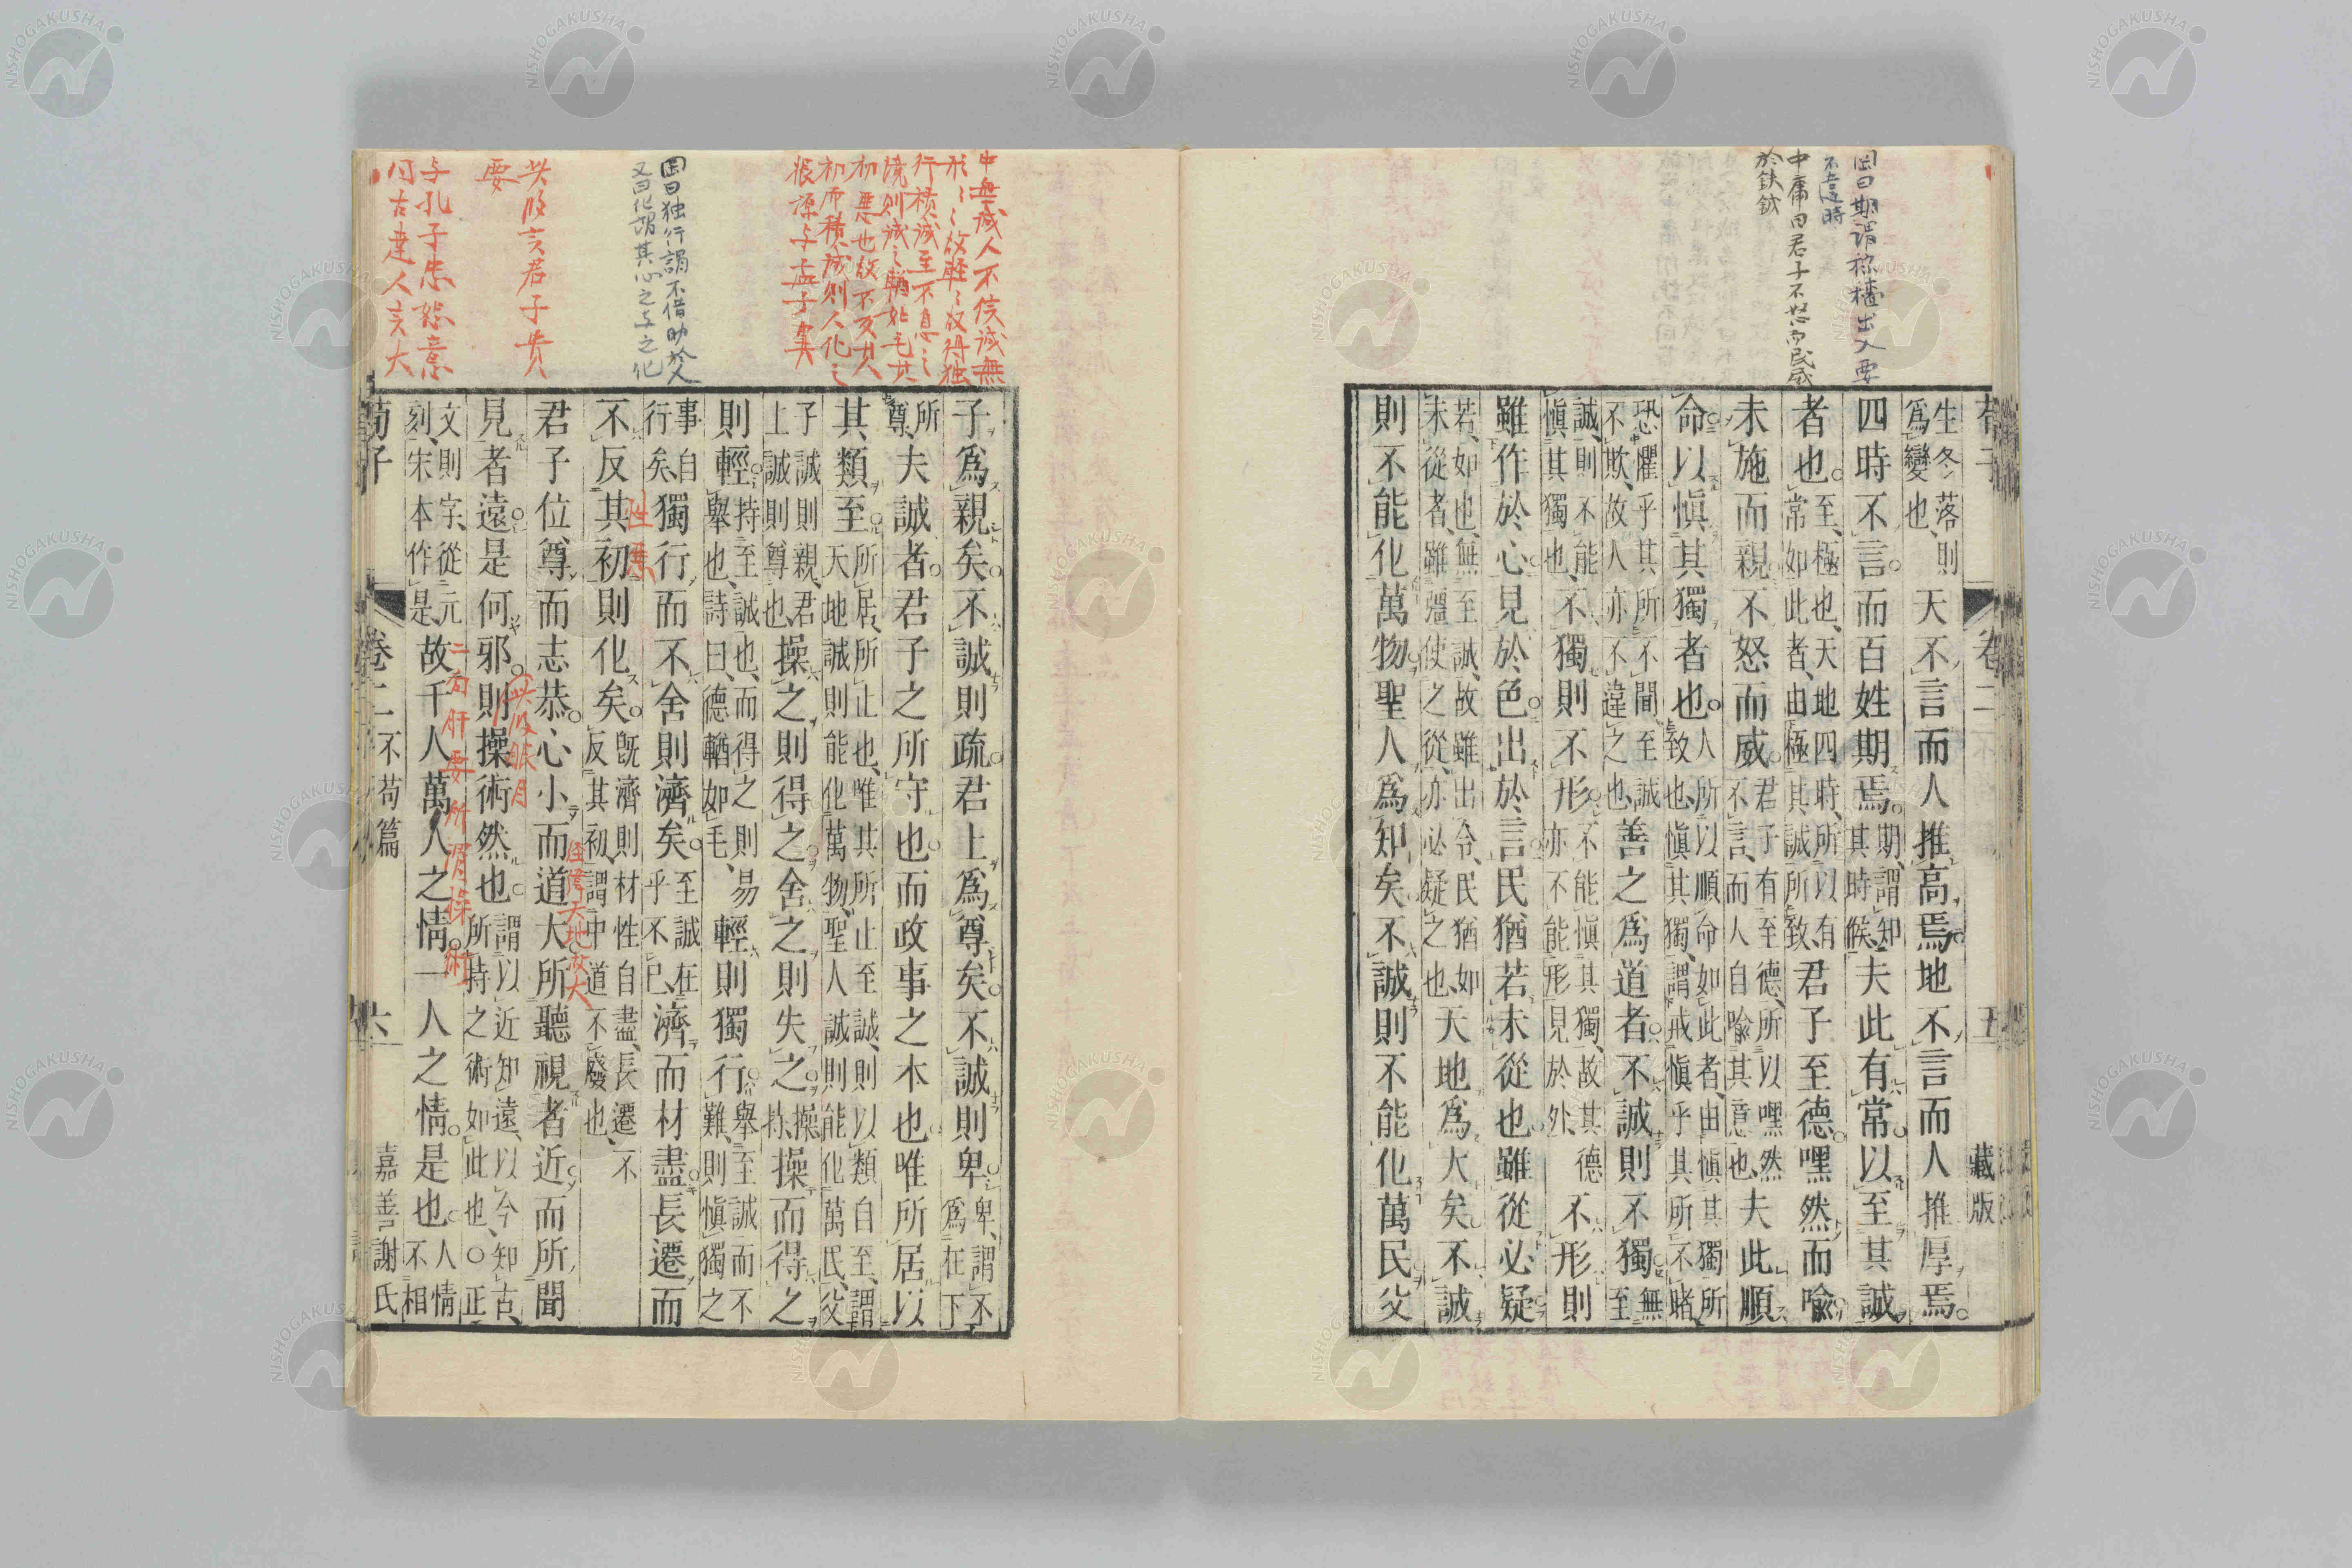 岡曰期謂禘櫨出入要
不違時
中庸曰君子不怒而民威
於鈇鉞
荀子 卷二 五 藏版
生冬落則
爲變也、天不言而人推高焉地不言而人推厚焉
四時不言而百姓期焉期謂知其時候夫此有常以至其誠
者也至極也、天地四時所以有常如此者、由極其誠所致、君子至德嘿然而喩
未施而親不怒而威君子有至德、所以嘿然不言、而人自喩其意也、夫此順
命以愼其獨者也人所以順命如此者、由愼其獨所致也、愼其獨、謂戒愼乎其所不睹
恐懼乎其所不聞至誠不欺、故人亦不違之也、善之爲道者不誠則不獨無至
誠、則不能愼其獨也、不獨則不形不能愼其獨、故其德亦不能形見於外、不形則
雖作於心見於色出於言民猶若未從也雖從必疑
若、如也、無至誠、故雖出令、民猶如未從者、雖彊使之從、亦必疑之也、天地爲大矣不誠
則不能化萬物聖人爲知矣不誠則不能化萬民父
中無誠人不信誠無
行積誠至不息之
根源与孟子異
岡曰独行謂不借助於人
又曰化謂其心之与之化
共以言君子貴
要
与孔子忠恕意
同古建人言大
子爲親矣不誠則疏君上爲尊矣不誠則卑卑、謂不爲在下
所尊、夫誠者君子之所守也而政事之本也唯所居以
其類至所居、所止也、唯其所止至誠、則以類自至、謂天地誠則能化萬物、聖人誠則能化萬民、父
子誠則親、君上誠則尊也、操之則得之舍之則失之操持操而得之
則輕持至誠也、而得之則易舉也、詩曰、德輶如毛、輕則獨行舉至誠而不難、則愼獨之
事自行矣、獨行而不舍則濟矣至誠在乎不已、濟而材盡長遷而
不反其初則化矣旣濟則材性自盡、長遷不反其初、謂中道不廢也、
性惡
君子位尊而志恭心小而道大所聽視者近而所聞
見者遠是何邪則操術然也謂以近知遠、以今知古、所持之術如此也、○正
文則字、從元刻、宋本作是、故千人萬人之情一人之情是也人情不相
二句肝要所謂操術
荀子 卷二 不苟篇 六 嘉善謝氏